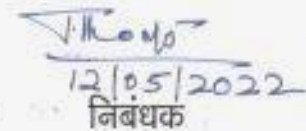 12/05/2022
निबंधक